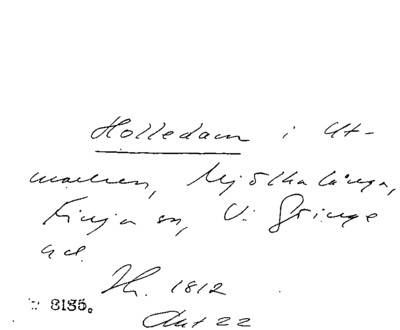 Holledam i Ut-
marken, Mjölkalånga,
Finja sn, V. Göinge
hd.
Sk. 1812
Akt 22
8135.